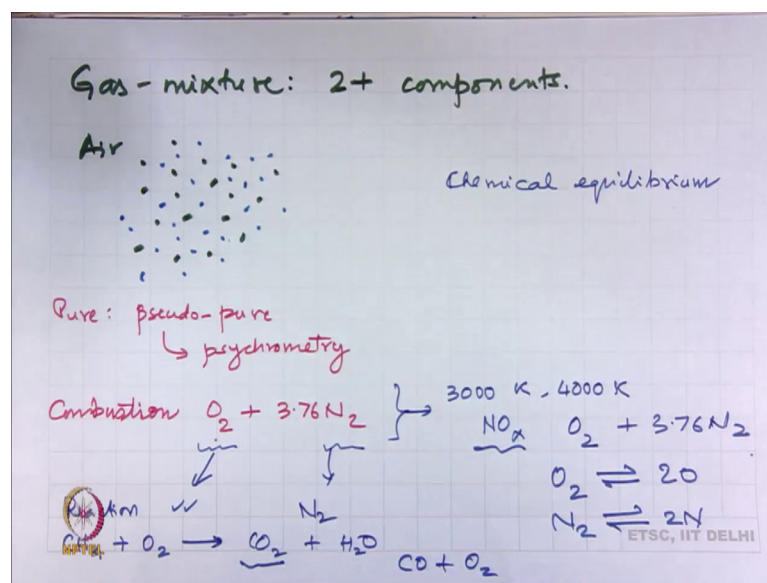 Gas-mixture: 2+ components.
Air
Chemical equilibrium
Pure: pseudo-pure
↳ psychrometry
Combustion O₂ + 3.76N₂ } → 3000 K, 4000 K
NOₓ O₂ + 3.76N₂
O₂ ⇌ 2O
N₂ ⇌ 2N
Reaction ✓✓ N₂
+ O₂ → CO₂ + H₂O
CO + O₂
NPTEL
ETSC, IIT DELHI